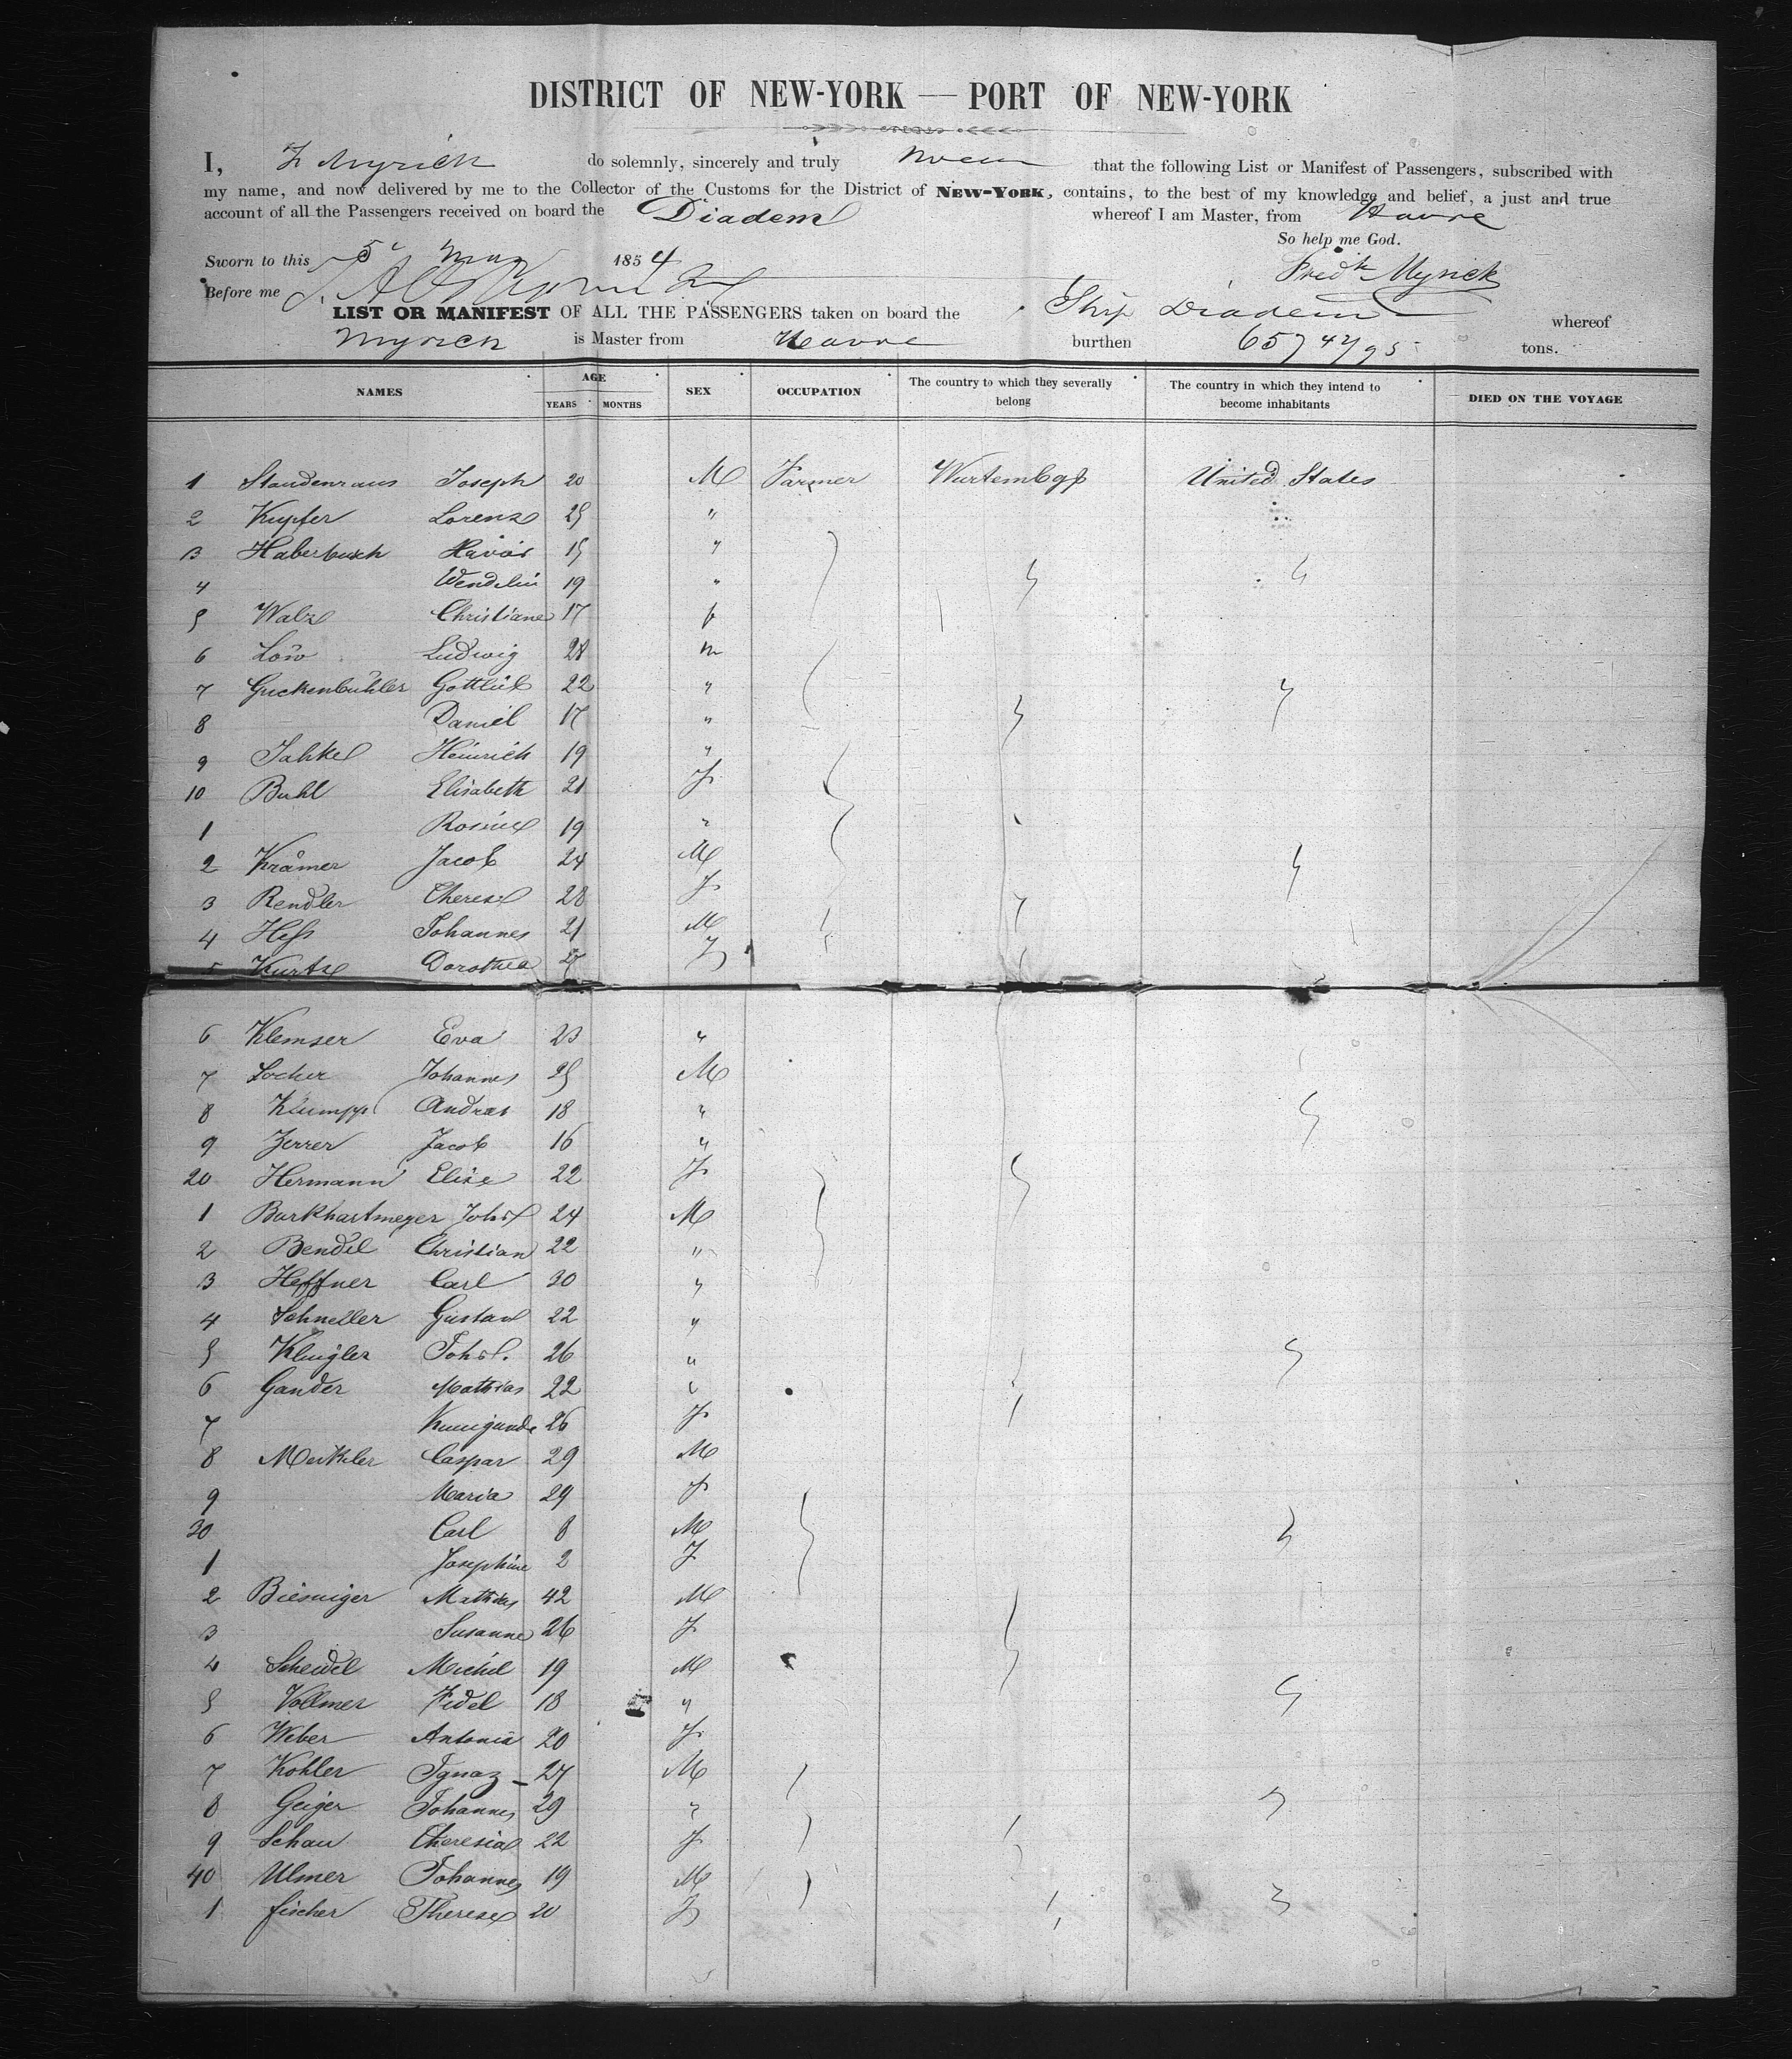 DISTRICT OF NEW-YORK — PORT OF NEW-YORK
I, F Myrick do solemnly, sincerely and truly swear that the following List or Manifest of Passengers, subscribed with
my name, and now delivered by me to the Collector of the Customs for the District of NEW-YORK, contains, to the best of my knowledge and belief, a just and true
account of all the Passengers received on board the Diadem whereof I am Master, from Havre
So help me God.
Sworn to this 5 May 1854
Fredk Myrick
Before me
LIST OR MANIFEST OF ALL THE PASSENGERS taken on board the Ship Diadem whereof
Myrick is Master from Havre burthen 657 42/95 tons.
NAMES AGE YEARS MONTHS SEX OCCUPATION The country to which they severally belong The country in which they intend to become inhabitants DIED ON THE VOYAGE
1 Staudenraus Joseph 20 M Farmer Wurtembg United States
2 Kupfer Lorenz 25 "
3 Haberbusch Xavar 15 "
4 Wendelin 19 "
5 Walz Christiane 17 f
6 Löw Ludwig 28 m
7 Guckenbühler Gottlieb 22 "
8 Daniel 17 "
9 Jahke Heinrich 19 "
10 Buhl Elisabeth 21 F
1 Rosine 19 "
2 Krämer Jacob 24 M
3 Rendler Therese 28 F
4 Heß Johannes 21 M
5 Kurtz Dorothea 27 F
6 Klemser Eva 23 "
7 Locher Johannes 25 M
8 Klumpp Andras 18 "
9 Zerrer Jacob 16 "
20 Hermann Elise 22 F
1 Burkhartmeyer Johs 24 M
2 Bendel Christian 22 "
3 Heffner Carl 30 "
4 Schneller Gustav 22 "
5 Klingler Johs. 26 "
6 Gander Mathias 22 "
7 Kunigunde 26 F
8 Meikler Caspar 29 M
9 Maria 29 F
30 Carl 8 M
1 Josephine 2 F
2 Biesniger Mathias 42 M
3 Susanne 26 F
4 Scheidel Michel 19 M
5 Vollmer Fidel 18 "
6 Weber Antonia 20 F
7 Kohler Ignaz 27 M
8 Geiger Johannes 29 "
9 Schau Theresia 22 F
40 Ulmer Johannes 19 M
1 Fischer Therese 20 F